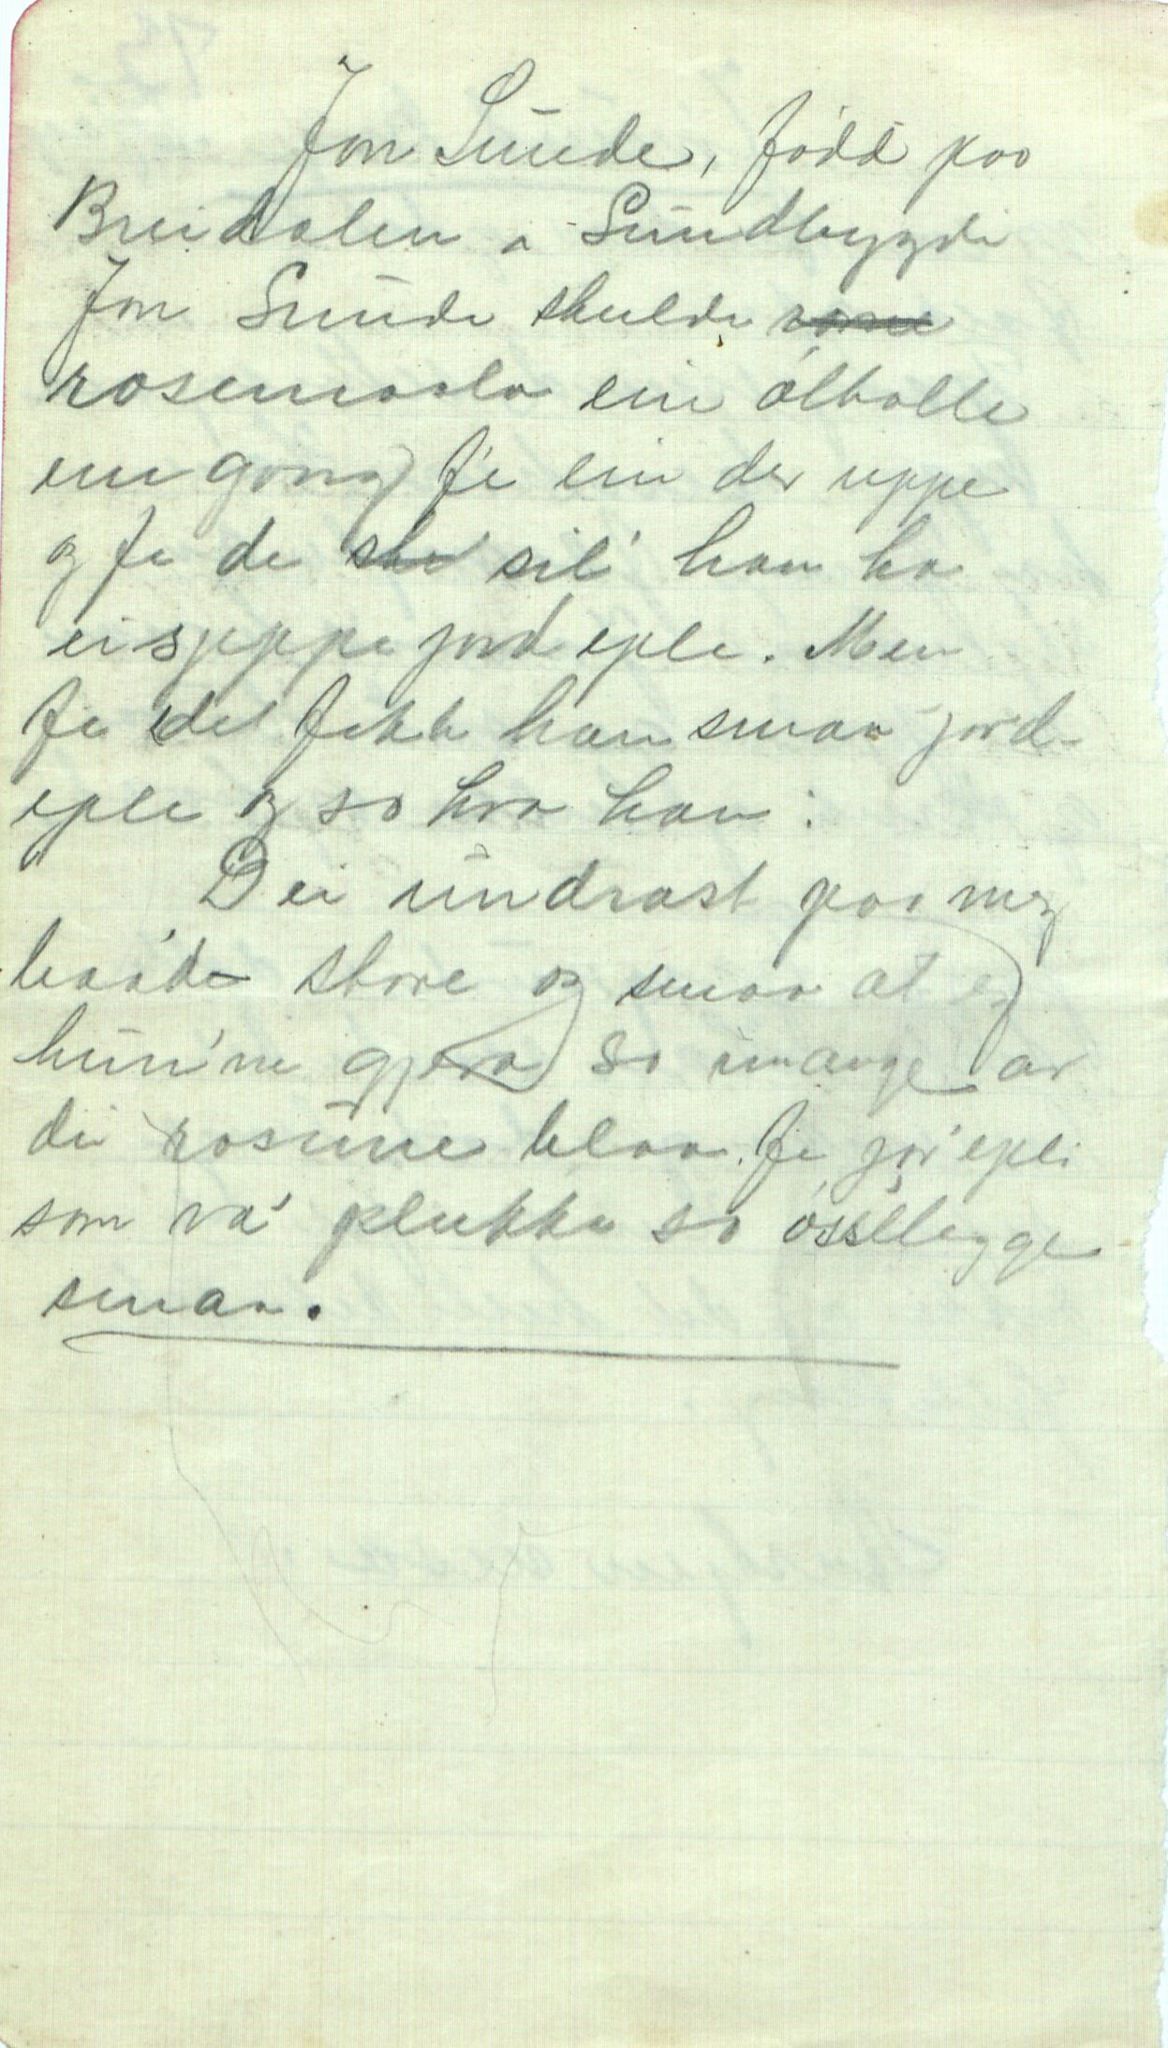 Jon Sunde, född paa
Breidalen a Sundbygdi
Jon Sunde skulde
rosemaala ein ölbolle
ein gong fe ein der uppe
og fe de ska sil' han ha
ei sjeppe jordeple. Men
fe det fekk han smaa jord-
eple og so kva han:
Dei undrast paa meg
baade store og smaa at eg
kun'ne gjera so mange av
dei rosune blaa. Fe jor'epli
som va' plukka so össlegge
smaa.